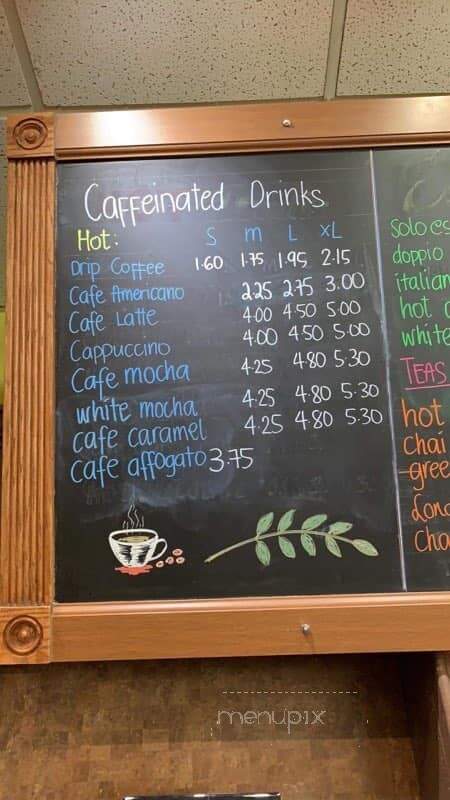 Caffeinated Drinks
Hot: S m L XL
Drip Coffee 1.60 1.75 1.95 2.15
Cafe Americano 2.25 2.75 3.00
Cafe Latte 4.00 4.50 5.00
Cappuccino 4.00 4.50 5.00
Cafe mocha 4.25 4.80 5.30
white mocha 4.25 4.80 5.30
cafe caramel 4.25 4.80 5.30
cafe affogato 3.75
Solo es
doppio
italian
hot
white
TEAS
hot
chai
gree
Lon
Cha
menupix